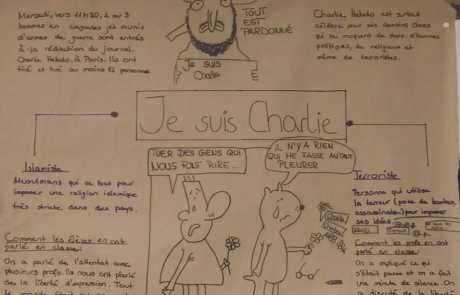 Mercredi, vers 11h20, 2 ou 3
hommes en cagoules et munis
d'armes de guerre sont entrés
à la rédaction du journal
Charlie Hebdo, à Paris. Ils ont
tiré et tué au moins 12 personne
TOUT
EST
PARDONNÉ
Je suis
Charlie
Charlie Hebdo est surtout
célèbre pour ses dessins chocs
qui se moquent de stars, d'hommes
politiques, de religieux et
même de terroristes.
Je suis Charlie
Islamiste
Musulmans qui se bat pour
imposer une religion islamique
très stricte dans des pays.
Comment les élèves en ont
parlé en classe
On a parlé de l'attentat avec
plusieurs profs. Ils nous ont parlé
de la liberté d'expression. Tout
le monde était
TUER DES GENS QUI
NOUS FONT RIRE...
IL N'Y A RIEN
QUI ME FASSE AUTANT
PLEURER
Charlie
Terroriste
Personne qui utilise
la terreur (pose de bombes,
assassinats) pour imposer
ses idées.
Comment les profs en ont
parlé en classe
On a expliqué ce qui
s'était passé et on a fait
une minute de silence. On
a discuté de la liberté